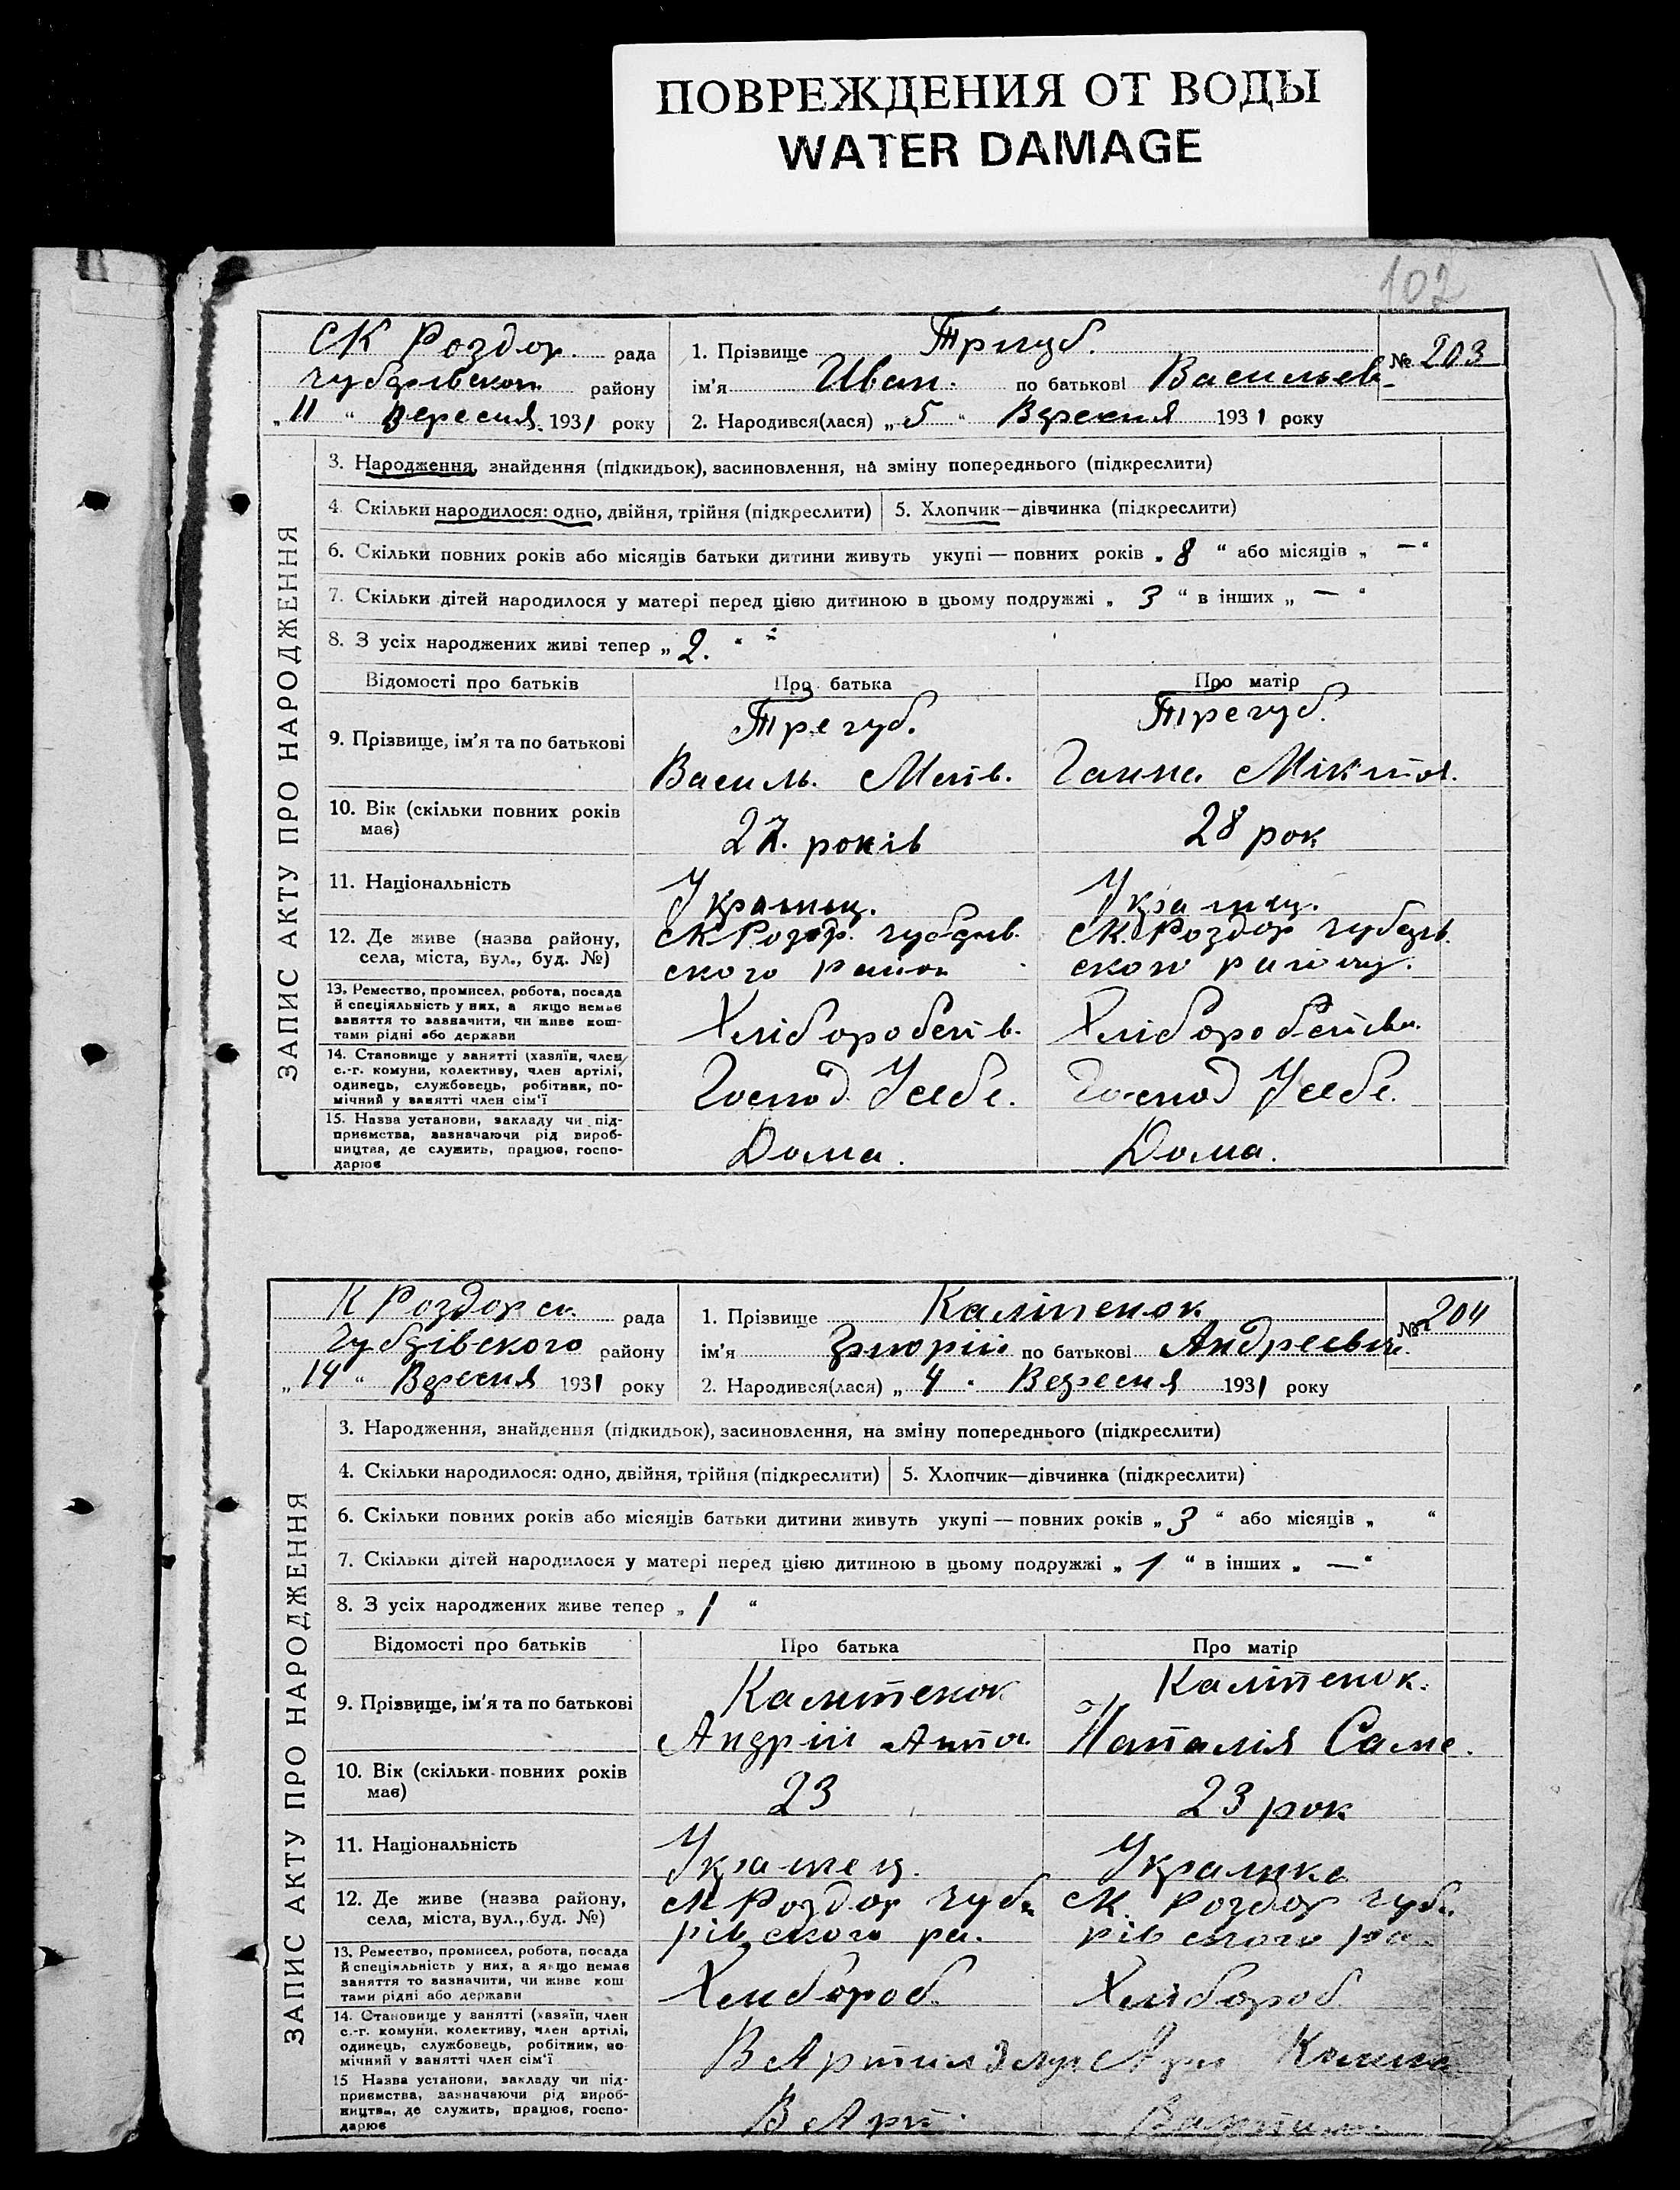 ПОВРЕЖДЕНИЯ ОТ ВОДЫ
WATER DAMAGE
102
СК Роздор. рада
району
„11“ Вересня 1931 року
1. Прізвище Тригуб.
ім'я Иван. по батькові Васильев
2. Народився(лася) „5“ Вересня 1931 року
№ 203
ЗАПИС АКТУ ПРО НАРОДЖЕННЯ
3. Народження, знайдення (підкидьок), засиновлення, на зміну попереднього (підкреслити)
4. Скільки народилося: одно, двійня, трійня (підкреслити) 5. Хлопчик—дівчинка (підкреслити)
6. Скільки повних років або місяців батьки дитини живуть укупі — повних років „8“ або місяців „—“
7. Скільки дітей народилося у матері перед цією дитиною в цьому подружжі „3“ в інших „—“
8. З усіх народжених живі тепер „2.“
Відомості про батьків Про батька Про матір
9. Прізвище, ім'я та по батькові
Трегуб. Трегуб.
Василь. Матв. Ганна Мікитов.
10. Вік (скільки повних років має)
27. років 28 рок
11. Національність
Украинц. Украинц.
12. Де живе (назва району, села, міста, вул., буд. №)
СК Роздор. СК. Роздор
ского район ского району.
13. Ремество, промисел, робота, посада й спеціяльність у них, а якщо немає заняття то зазначити, чи живе коштами рідні або держави
Хліборобств. Хліборобства.
14. Становище у занятті (хазяїн, член с.-г. комуни, колективу, член артілі, одинець, службовець, робітник, помічний у занятті член сім'ї
Господ Усебе. Господ Усебе.
15. Назва установи, закладу чи підприємства, зазначаючи рід виробництва, де служить, працює, господарює
Дома. Дома.
К Роздорск. рада
району
„14“ Вересня 1931 року
1. Прізвище Калітенок
ім'я по батькові Андреевич.
2. Народився(лася) „4“ Вересня 1931 року
№ 204
ЗАПИС АКТУ ПРО НАРОДЖЕННЯ
3. Народження, знайдення (підкидьок), засиновлення, на зміну попереднього (підкреслити)
4. Скільки народилося: одно, двійня, трійня (підкреслити) 5. Хлопчик—дівчинка (підкреслити)
6. Скільки повних років або місяців батьки дитини живуть укупі — повних років „3“ або місяців „ “
7. Скільки дітей народилося у матері перед цією дитиною в цьому подружжі „1“ в інших „—“
8. З усіх народжених живе тепер „1“
Відомості про батьків Про батька Про матір
9. Прізвище, ім'я та по батькові
Калитенок Калітенок.
Андрій Анто. Наталія Саме.
10. Вік (скільки повних років має)
23 23 рок
11. Національність
Украінец. Украинка
12. Де живе (назва району, села, міста, вул., буд. №)
СК Роздор Чуба СК. Роздор Чуба
рівского ра. рівского ра.
13. Ремество, промисел, робота, посада й спеціяльність у них, а якщо немає заняття то зазначити, чи живе коштами рідні або держави
Хлибороб. Хлібороб.
14. Становище у занятті (хазяїн, член с.-г. комуни, колективу, член артілі, одинець, службовець, робітник, помічний у занятті член сім'ї
В Артил
15 Назва установи, закладу чи підприємства, зазначаючи рід виробництва, де служить, працює, господарює
В Арт.